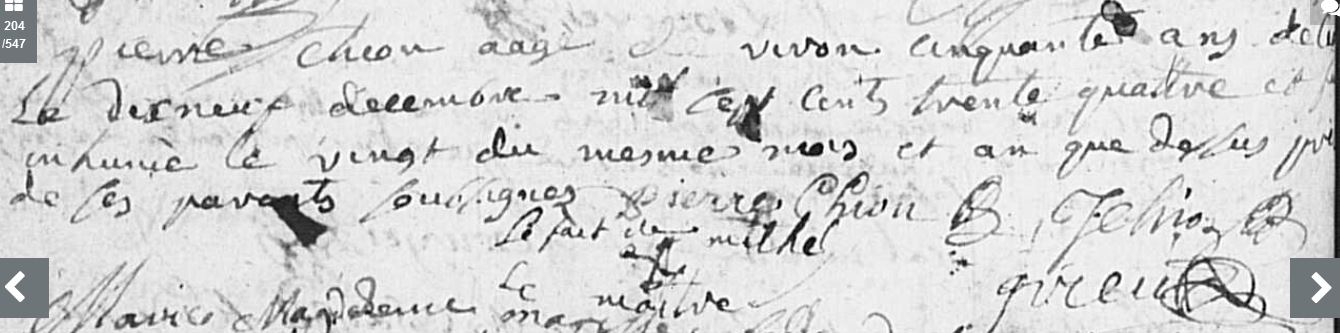 204
/547
pierre chion aagé de viron cinquante ans de
Le dixneuf decembre mil sept cents trente quattre et
inhumé le vingt du mesme mois et an que dessus
de ses parants soussignes pierre Chion J Chion
Le fait de michel
greu
Le maitre
Marie Magdelenne